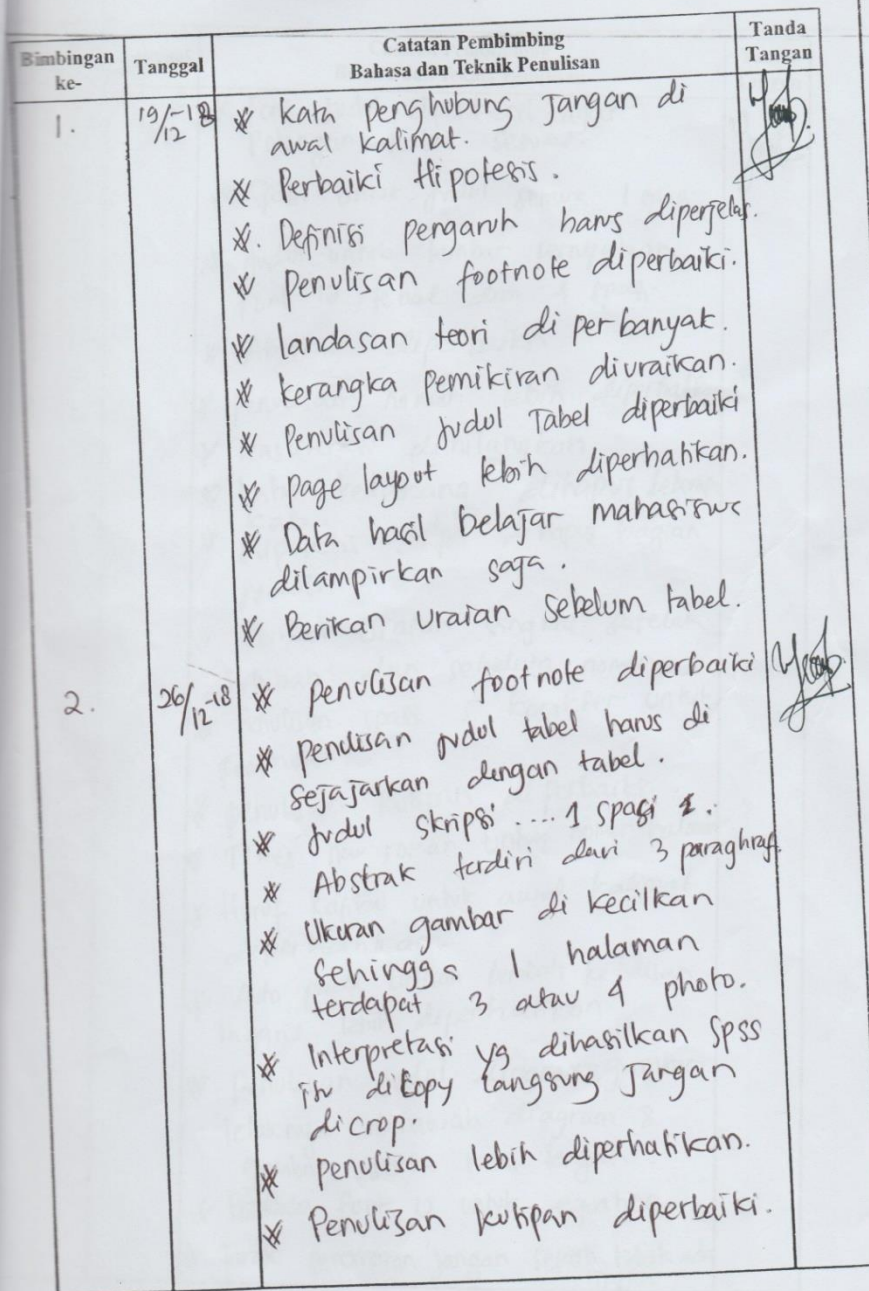 Bimbingan ke-
Tanggal
Catatan Pembimbing
Bahasa dan Teknik Penulisan
Tanda Tangan
1.
19/12-18
* Kata penghubung Jangan di
awal kalimat.
* Perbaiki Hipotesis.
*. Definisi pengaruh harus diperjelas.
* Penulisan footnote diperbaiki.
* landasan teori di perbanyak.
* kerangka pemikiran diuraikan.
* Penulisan Judul Tabel diperbaiki
* Page layout lebih diperhatikan.
* Data hasil belajar mahasiswa
dilampirkan saja.
* Berikan uraian sebelum tabel.
2.
26/12-18
* Penulisan footnote diperbaiki
* penulisan judul tabel harus di
sejajarkan dengan tabel.
* Judul skripsi .... 1 spasi
* Abstrak terdiri dari 3 paraghraf.
* Ukuran gambar di kecilkan
sehingga 1 halaman
terdapat 3 atau 4 photo.
* Interpretasi yg dihasilkan SPSS
itu dikopy langsung Jangan
dicrop.
* penulisan lebih diperhatikan.
* Penulisan kutipan diperbaiki.